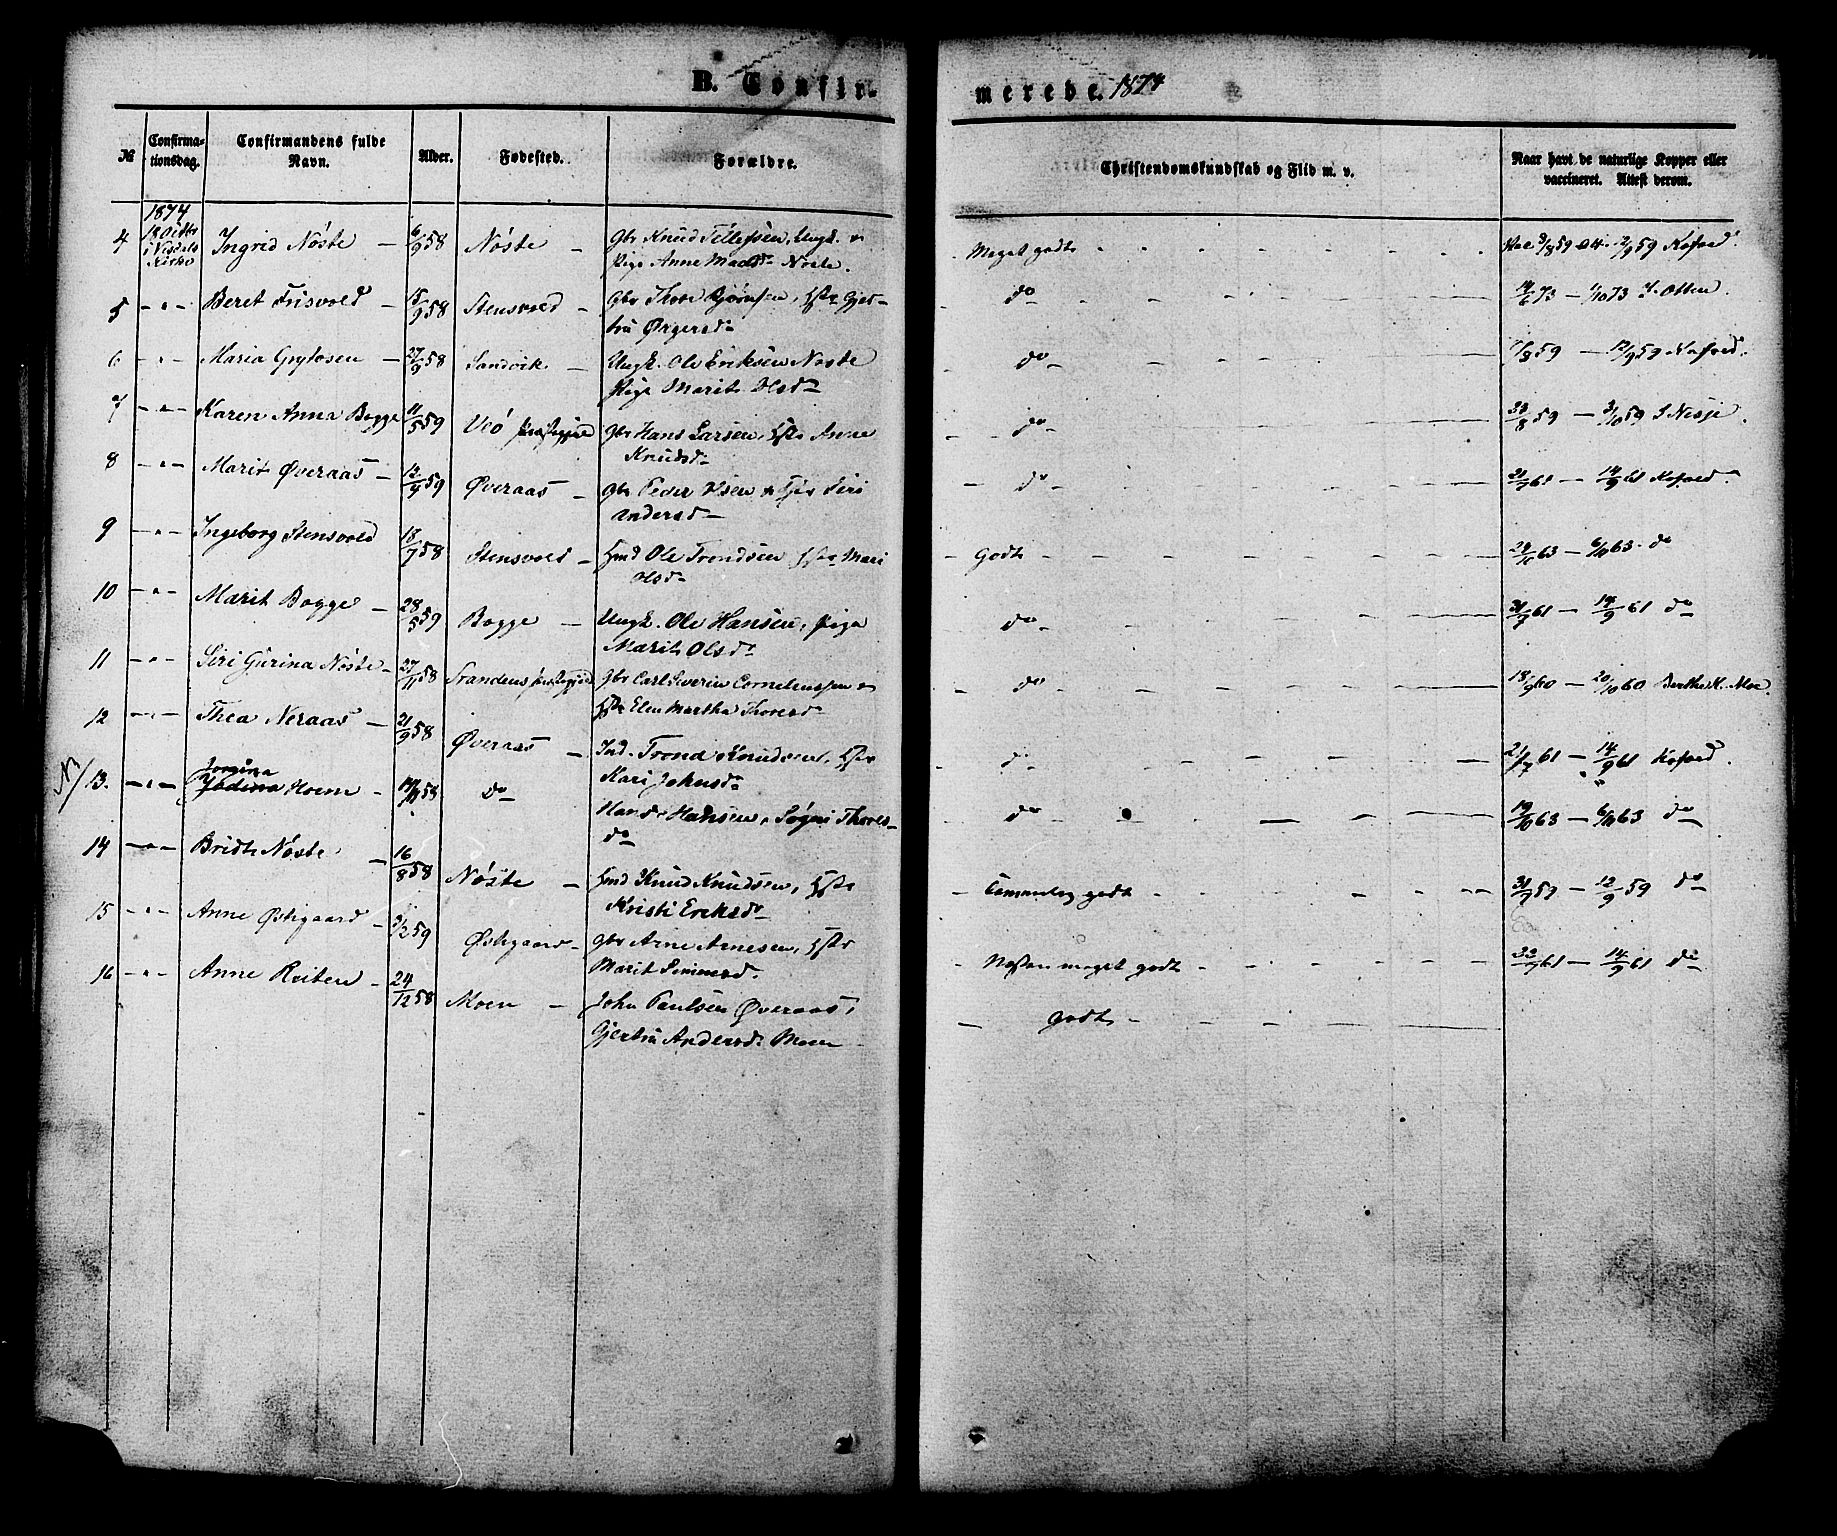 B. Confir-
merede. 1874
№
Confirma-
tionsdag.
Confirmandens fulde
Navn.
Alder.
Fødested.
Forældre.
Christendomskundskab og Flid m. v.
Naar havt de naturlige Kopper eller
vaccineret. Attest derom.
1874
4 18 Octbr Ingrid Nöste – 6/9 58 Nöste – Gbr Knud Tellefsen, Ungk. &
i Visdals Pige Anne Madsd. Nöste. Meget godt 59 Att. 59 Kofoed.
Kirke
5 – " – Beret Frisvold 15/9 58 Stensvold – Gbr Thore Bjørnsen, Hstr Gjer-
tru Ørgersd. do 14/6 73 – 1/10 73 Otten
6 – " – Maria Grytosen – 27/9 58 Sandvik – Ungk. Ole Eriksen Nöste
Pige Marit Olsd. do 59 – 12/9 59 Kofoed.
7 – " – Karen Anna Bogge 11/5 59 Veö Præstegjeld Gbr Hans Larsen, Hstr Anne
Knudsd. do 59 – 3/10 59 S Nesje
8 – " – Marit Øveraas – 12/4 59 Øveraas – Gbr Peder Olsen & Hstr Siri
Andersd. do 61 – 14/9 61 Kofoed.
9 – " – Ingeborg Stensvold 18/7 58 Stensvold – Hmd Ole Trondsen Hstr Mari
Olsd. Godt 63 – 6/10 63 do
10 – " – Marit Bogge – 28/5 59 Bogge – Ungk. Ole Hansen, Pige
Marit Olsd. do 31/7 61 – 14/9 61 do
11 – " – Siri Gurina Nöste – 27/11 58 Strandens Præstegjeld Gbr Carl Severin Corneliussen &
Hstr Elen Martha Thoresd. do 18/9 60 – 20/10 60 Berthe K. Moe.
12 – " – Thea Neraas – 21/9 58 Øveraas – Ind. Trond Knudsen, Hstr
Kari Johnsd. do 21/7 61 – 14/9 61 Kofoed.
Jorgina
13. – " – Hoem – 58 do
Hansen, Søgni Thores-
do do 19/10 63 – 6/10 63 do
14 – " – Bridt Nöste – 16/8 58 Nöste – Hmd Knud Knudsen, Hstr
Kristi Eriksd. Temmelig godt 31/7 59 – 12/9 59 do
15 – " – Anne Østigaard – 2/2 59 Østigaard – Gbr Arne Arnesen, Hstr
Marit Simensd. Næsten meget godt 61 – 14/9 61 do
16 – " – Anne Reiten – 24/12 58 Moen – John Paulsen Øveraas,
Gjertru Andersd. Moen godt